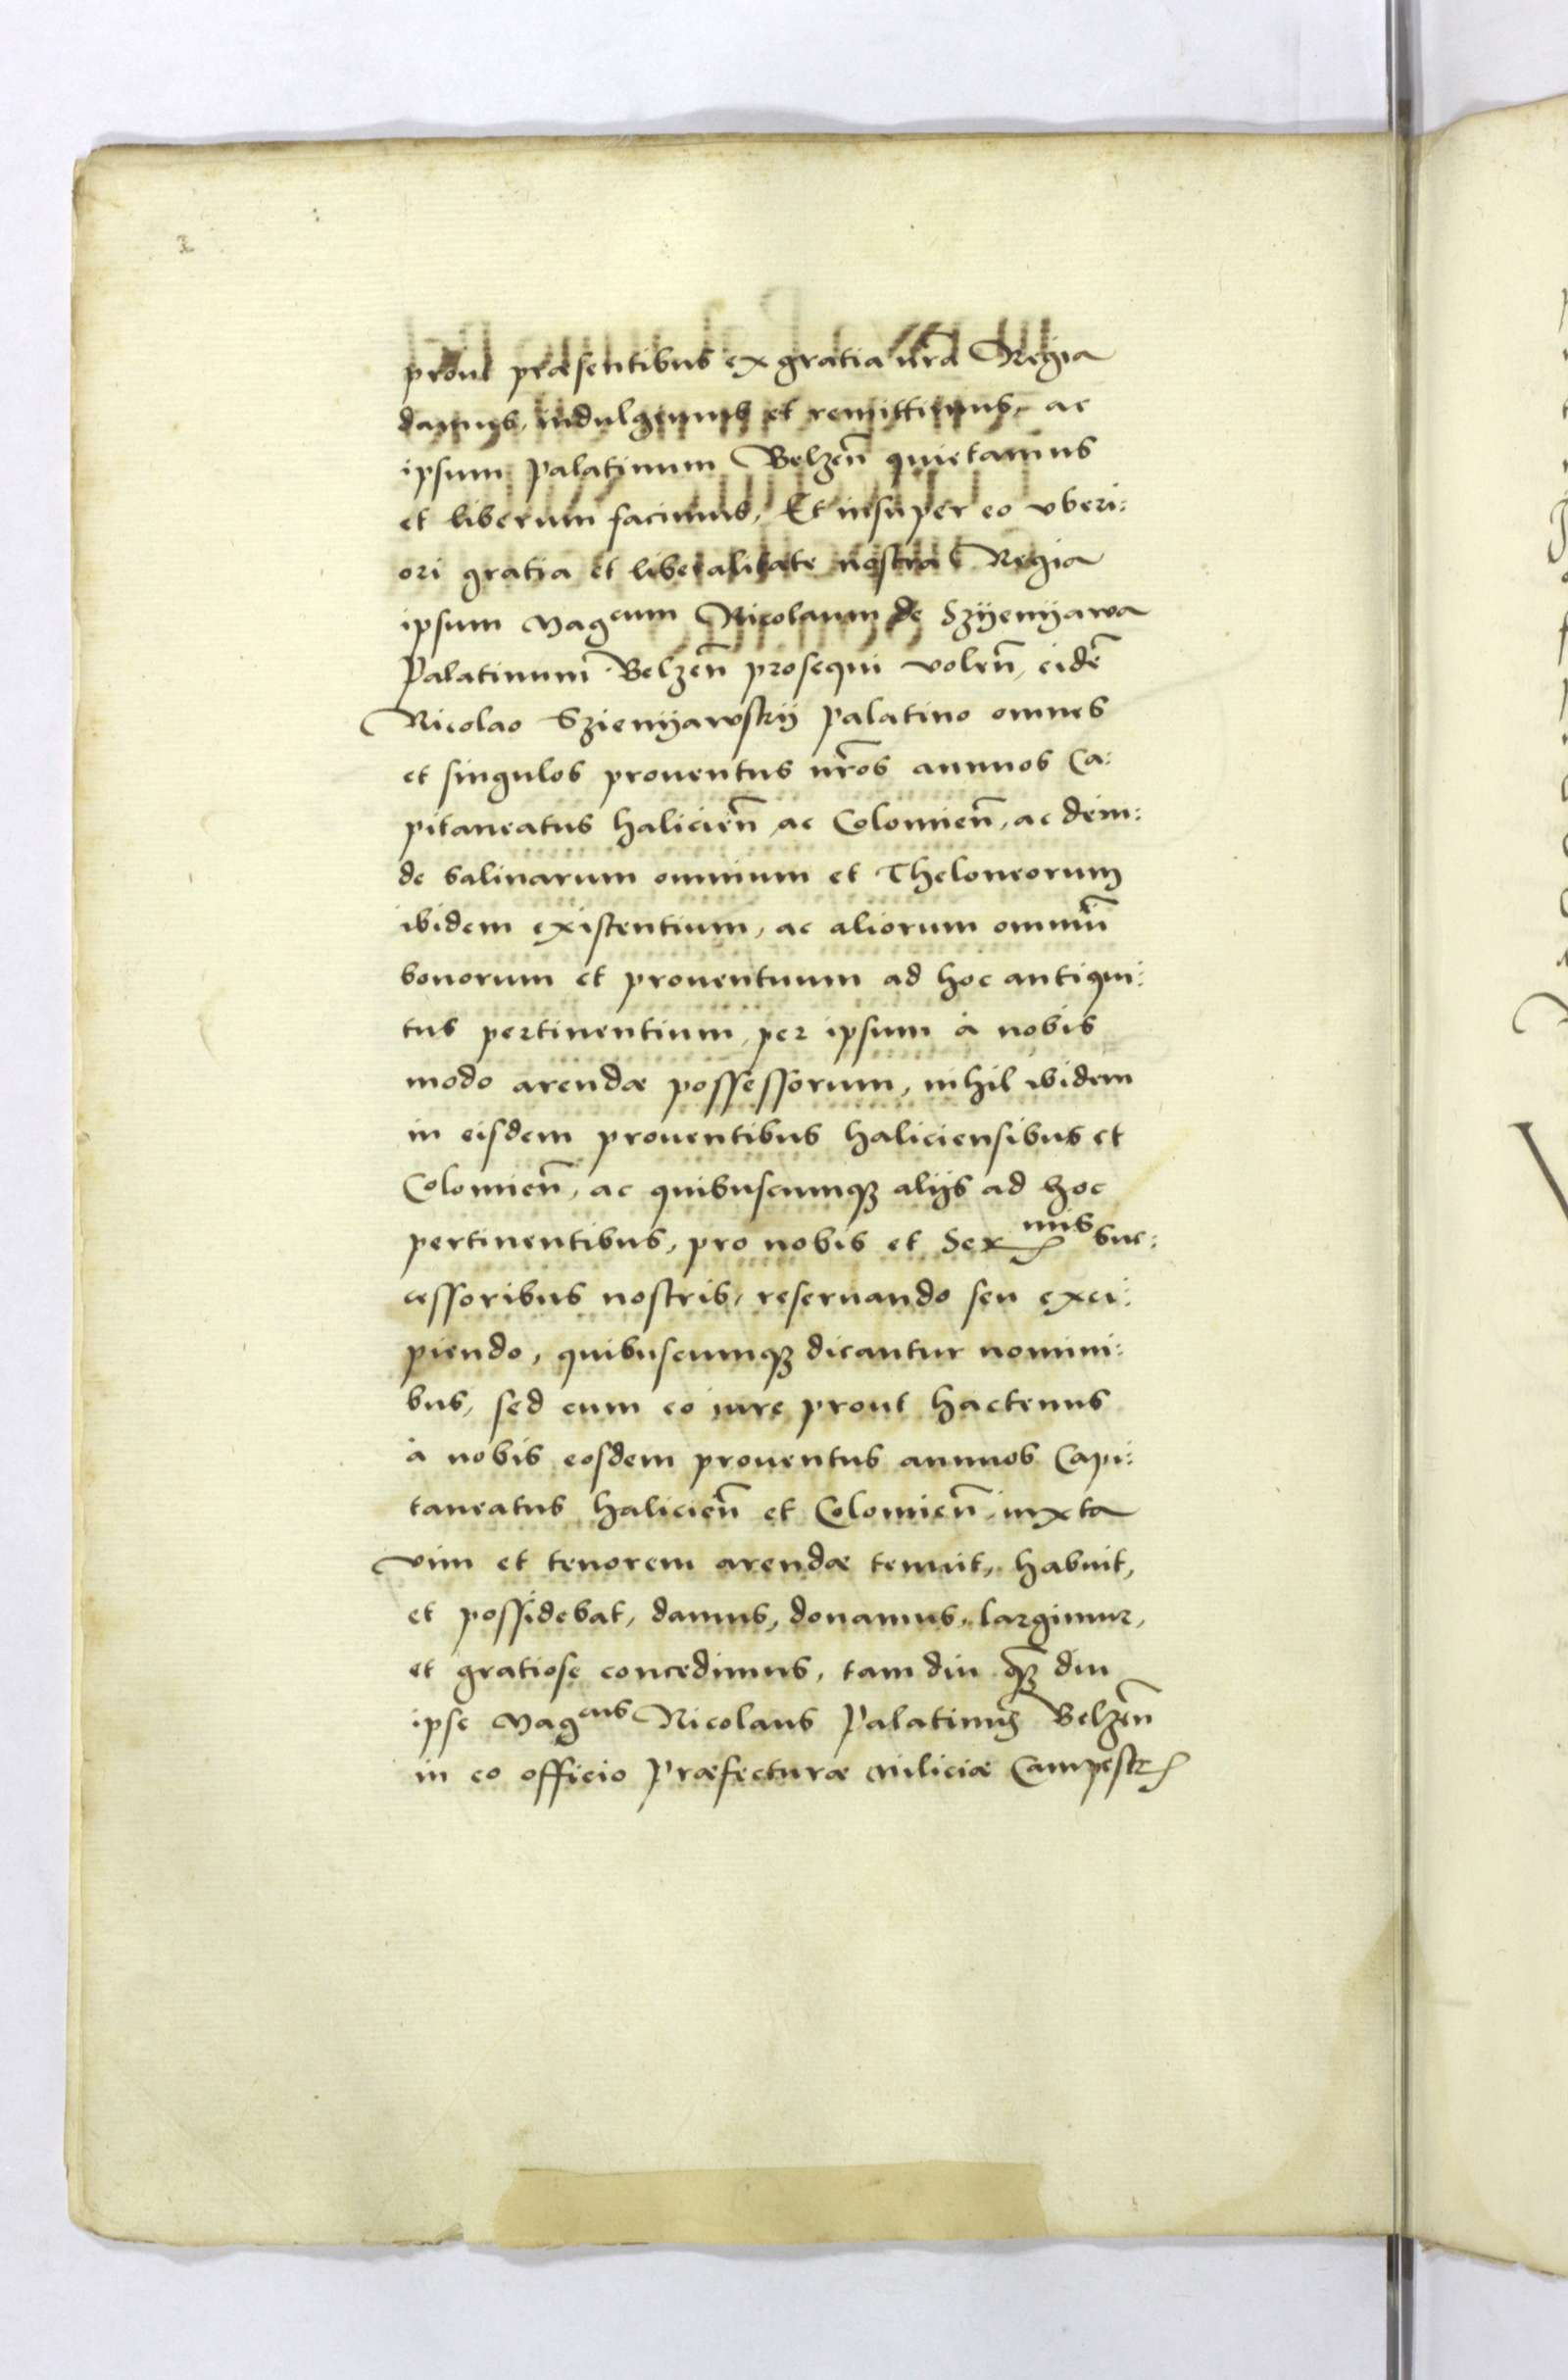 prout præsentibus ex gratia nr̃a Regia
damus, indulgemus et remittimus, ac
ipsum Palatinum Belzeñ quietamus
et liberum facimus, Et insuper eo vberi:
ori gratia et liberalitate nostra Regia
ipsum Mag^cum Nicolaum de Szyenyawa
Palatinum Belzeñ prosequi voleñ, eidẽ
Nicolao Szienyawsky Palatino omnes
et singulos prouentus nr̃os annuos Ca:
pitaneatus Halicieñ ac Colomieñ, ac dein:
de Salinarum omnium et Theloneorum
ibidem existentium, ac aliorum omniũ
bonorum et prouentuum ad hoc antiqui:
tus pertinentium, per ipsum à nobis
modo arendæ possessorum, nihil ibidem
in eisdem prouentibus Haliciensibus et
Colomieñ, ac quibuscumqꝫ alijs ad hoc
pertinentibus, pro nobis et Ser^mis Suc:
cessoribus nostris, reseruando seu exci:
piendo, quibuscumqꝫ dicantur nomini:
bus, sed cum eo iure prout hactenus
à nobis eosdem prouentus annuos Capi:
taneatus Halicieñ et Colomieñ iuxta
vim et tenorem arendæ tenuit, habuit,
et possidebat, damus, donamus, largimur,
et gratiose concedimus, tam diu qꝫ̃ diu
ipse Mag^cus Nicolaus Palatinus Belzeñ
in eo officio Præfecturæ Miliciæ Campestr